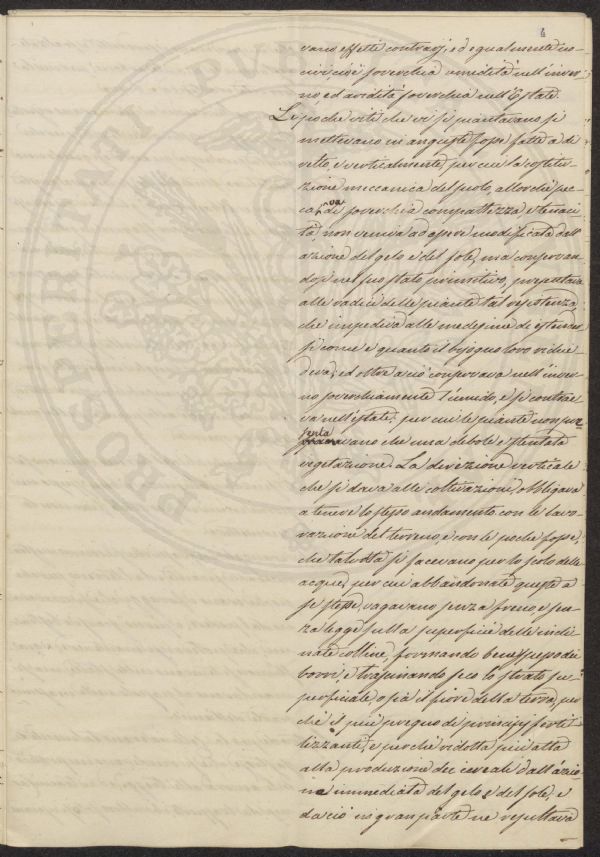 6
vano effetti contrarj, ed egualmente no-
civi, cioè soverchia umidità nell'inver-
no, ed aridità soverchia nell'Estate.
Le poche viti che vi si piantavano si
mettevano in anguste fosse fatte a di-
retto, e verticalmente, per cui la costitu-
zione meccanica del suolo, allorchè pec-
cava di soverchia compattezza e tenaci-
tà, non veniva ad essere modificata dall'
azione del gelo e del sole, ma conservan-
dosi nel suo stato primitivo, presentava
alle radici delle piante tal resistenza,
che impediva alle medesime di estendersi
siccome e quanto il bisogno loro richie-
deva; ed oltre a ciò conservava nell'inver-
no soverchiamente l'umido, e si contrae-
va nell'estate; per cui le piante non pre-
sentavano che una debole e stentata
vegetazione. La direzione verticale
che si dava alle coltivazioni, obbligava
a tenere lo stesso andamento con le lavo-
razione del terreno, e con le poche fosse,
che talvolta si facevano per lo scolo delle
acque, per cui abbandonate queste a
se stesse, vagavano senza freno, e sen-
za legge sulla superficie delle incli-
nate colline, formando bene spesso dei
borri, e trascinando seco lo strato su-
perficiale, o sia il fiore della terra, per-
chè il più pregno di principj fertil-
lizzanti, e perchè ridotta più atta
alla produzione dei cereali dall'azio-
ne immediata del gelo e del sole, e
da ciò in gran parte ne resultava
PROSPERITATI PVBLICAE